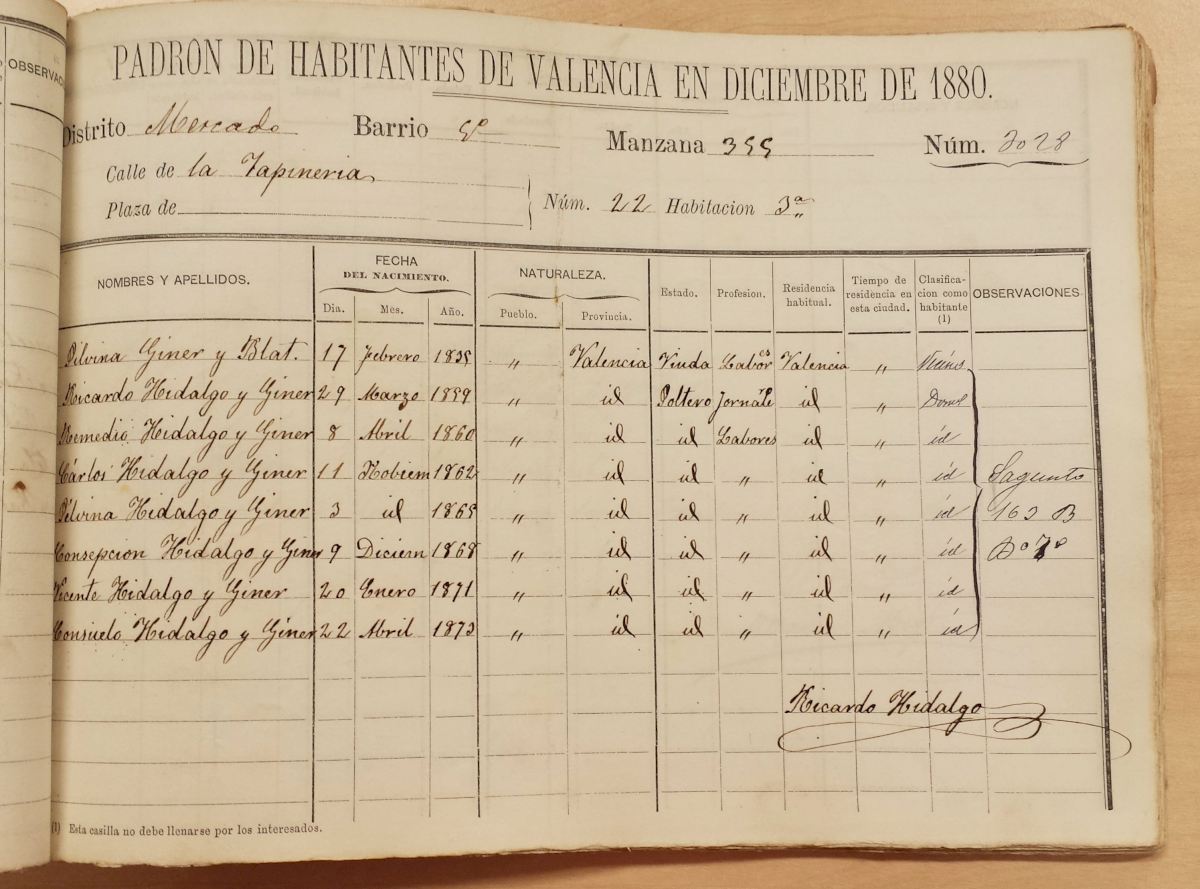 OBSERVAC
PADRON DE HABITANTES DE VALENCIA EN DICIEMBRE DE 1880.
Distrito Mercado Barrio 5º Manzana 355 Núm. 2028
Calle de la Tapineria
Plaza de
Núm. 22 Habitacion 3ª
NOMBRES Y APELLIDOS. FECHA DEL NACIMIENTO. NATURALEZA. Estado. Profesion. Residencia habitual. Tiempo de residencia en esta ciudad. Clasificacion como habitante (1) OBSERVACIONES
Dia. Mes. Año. Pueblo. Provincia.
Silvina Giner y Blat. 17 Febrero 1835 " Valencia Viuda Labores Valencia "
Ricardo Hidalgo y Giner 29 Marzo 1859 " id Soltero Jornale id "
Remedio Hidalgo y Giner 8 Abril 1860 " id id Labores id " id
Cárlos Hidalgo y Giner 11 Nobiem 1862 " id id id " id Sagunto
Silvina Hidalgo y Giner 3 id 1865 " id id " id " id 163 B
Consepcion Hidalgo y Giner 9 Diciem 1868 " id id " id " id
Vicente Hidalgo y Giner 20 Enero 1871 " id id " id " id
Consuelo Hidalgo y Giner 22 Abril 1873 " id id " id " id
Ricardo Hidalgo
(1) Esta casilla no debe llenarse por los interesados.